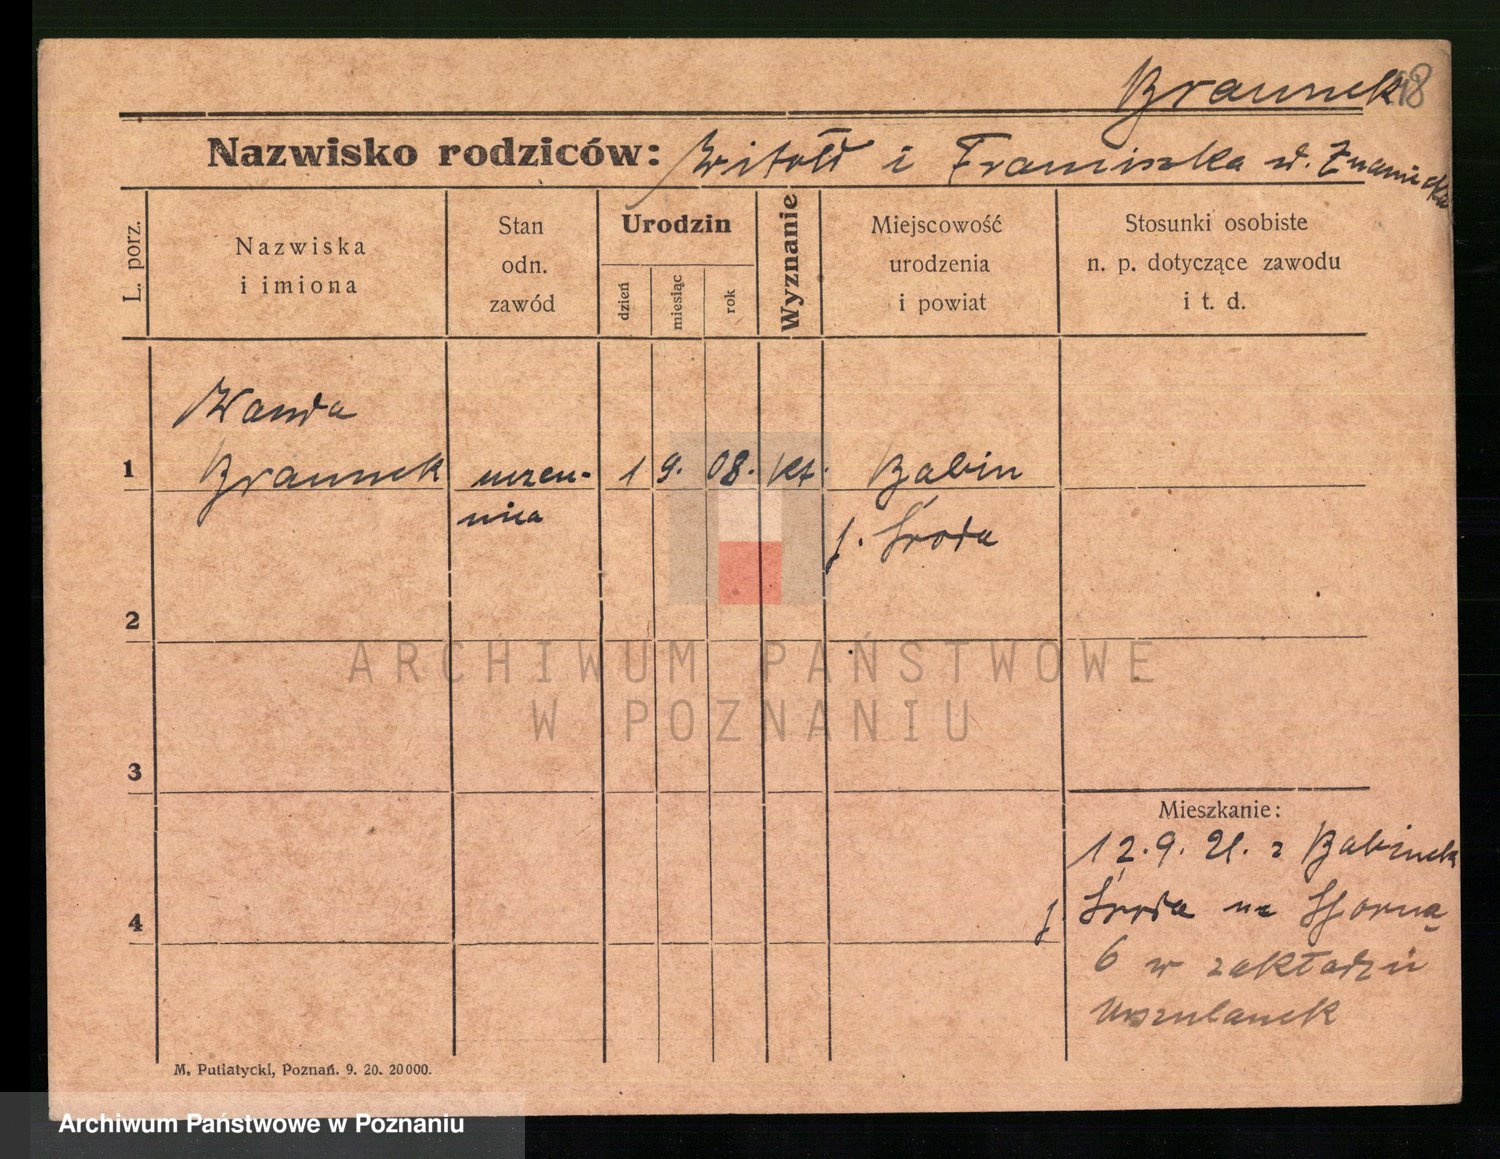 Braunek 48
Nazwisko rodziców: Witold i Franciszka d. Znaniecka
L. porz.
Nazwiska
i imiona
Stan
odn.
zawód
Urodzin
dzień
miesiąc
rok
Wyznanie
Miejscowość
urodzenia
i powiat
Stosunki osobiste
n. p. dotyczące zawodu
i t. d.
Wanda
1 Braunek uczen- 1 9. 08. kt. Babin
nica p. Środa
2
3
4
Mieszkanie:
12.9.21. z Babinek
p. Środa na
6 w zakładzie
Urszulanek
M. Putiatycki, Poznań. 9. 20. 20000.
ARCHIWUM PAŃSTWOWE
W POZNANIU
Archiwum Państwowe w Poznaniu